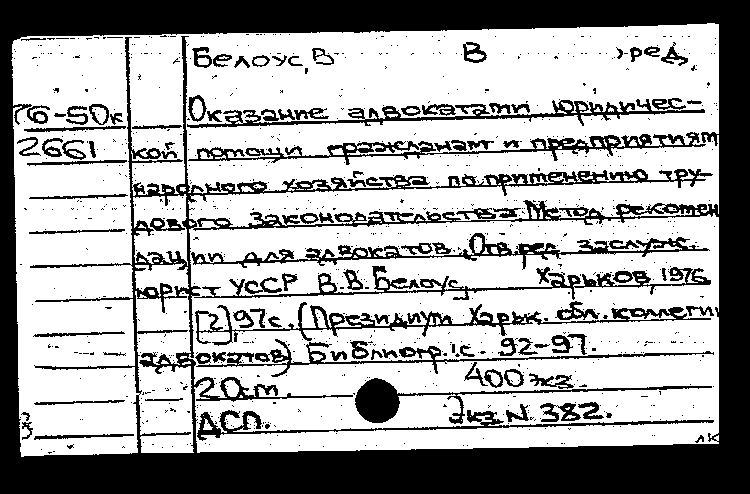 Белоус, В В ред.
76-50к Оказание адвокатами юридичес-
2661 кой помощи гражданам и предприятиям
народного хозяйства по применению тру-
дового законодательства. Метод. рекомен
дации для адвокатов. Отв. ред. заслуж.
юрист УССР В.В. Белоус. Харьков, 1976
[2], 97с. (Президиум Харьк. обл. коллегии
адвокатов) Библиогр.: с. 92-97.
20см. 400 экз.
ДСП. Экз. N 382.
лк